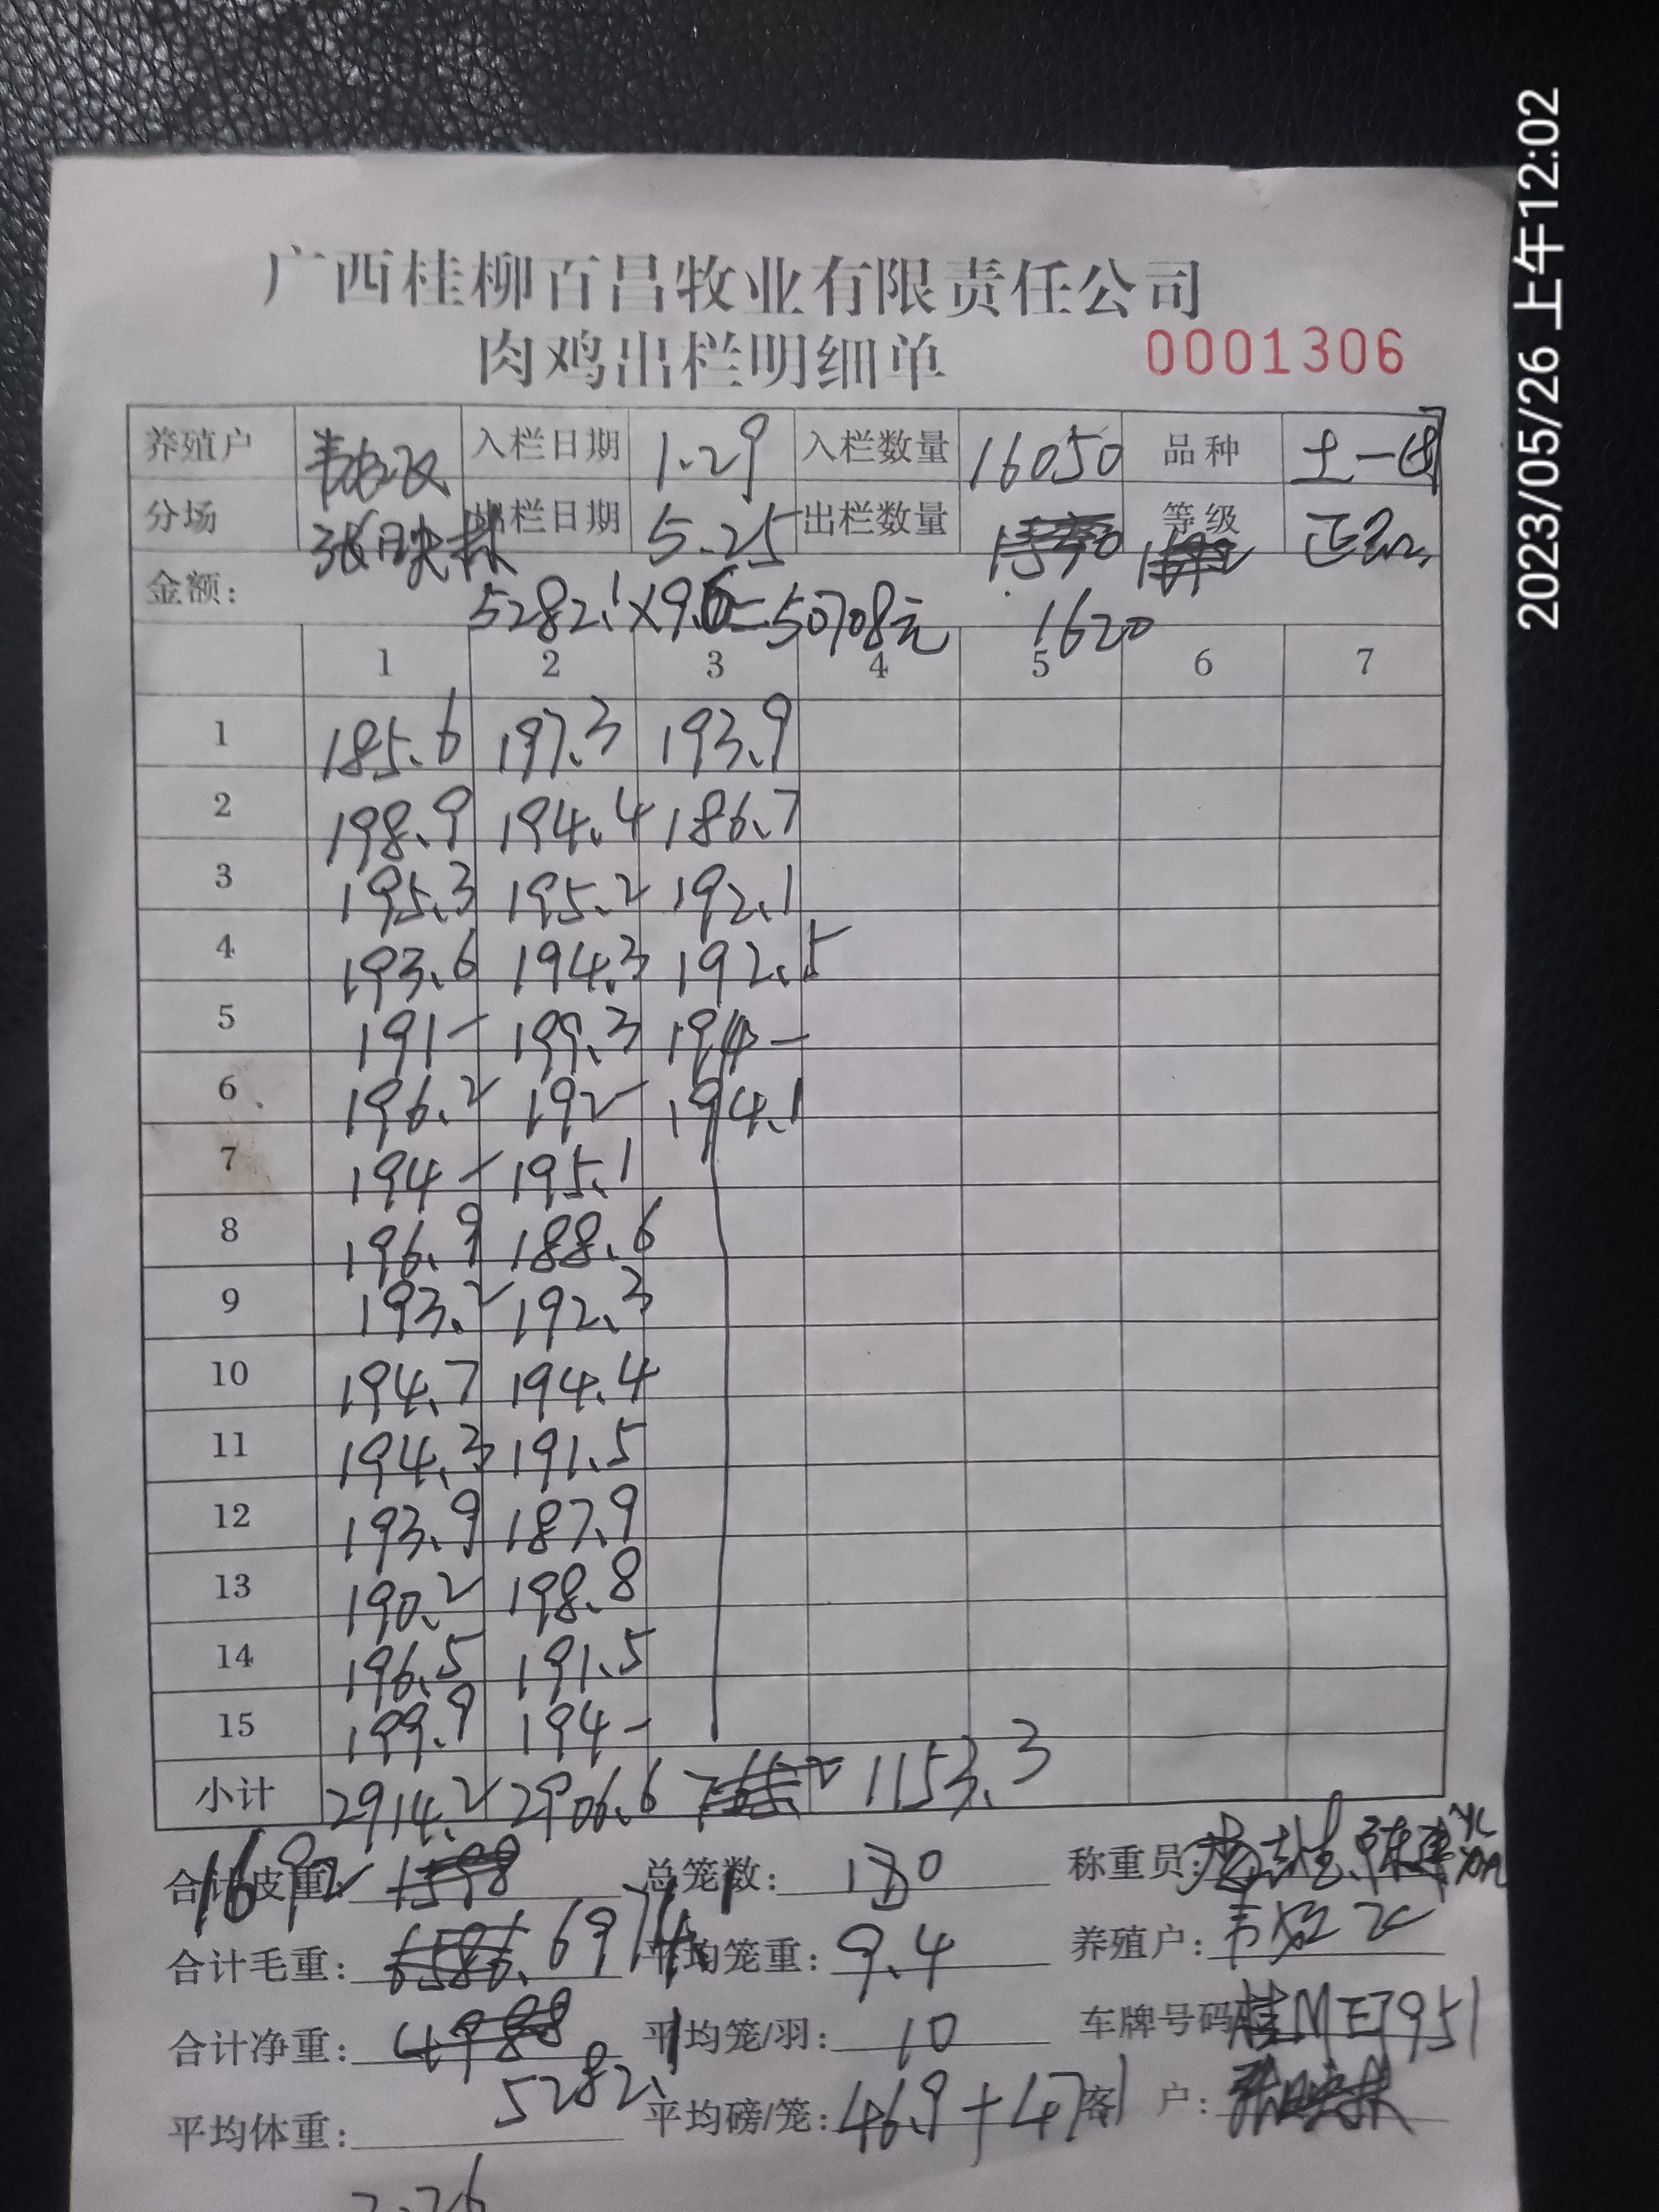 2023/05/26 上午12:02
广西桂柳百昌牧业有限责任公司
肉鸡出栏明细单 0001306
养殖户 入栏日期 1.29 入栏数量 16050 品种 土一
分场 张映林 出栏日期 5.25 出栏数量 等级 正品
金额: 5282.1×9.6=50708元 1620
1 2 3 4 5 6 7
1 185.6 197.3 193.9
2 198.9 194.4 186.7
3 195.3 195.2 192.1
4 193.6 194.3 192.5
5 191- 199.3 194-
6 196.2 192- 194.1
7 194- 195.1
8 196.9 188.6
9 193.2 192.3
10 194.7 194.4
11 194.3 191.5
12 193.9 187.9
13 190.2 198.8
14 196.5 191.5
15 199.9 194-
小计 2914.2 2906.6 1153.3
合计皮重: 1692 总笼数: 180 称重员:
合计毛重: 6974.1 平均笼重: 9.4 养殖户:
合计净重: 5282.1 平均笼/羽: 10 车牌号码 桂ME7951
平均体重: 平均磅/笼: 46.9+47 客户: 张映林